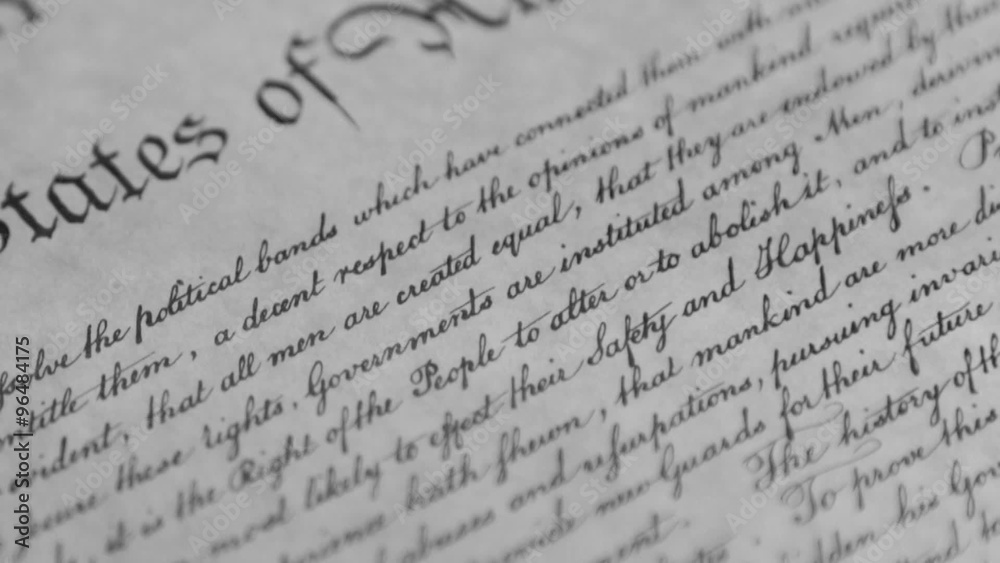 States of
ssolve the political bands which have connected them with
title them, a decent respect to the opinions of mankind requir
ident, that all men are created equal, that they are endowed by thei
cure these rights, Governments are instituted among Men, derivin
it is the Right of the People to alter or to abolish it, and to inst
most likely to effect their Safety and Happineſs. Pr
hath ſhewn, that mankind are more di
abuses and uſurpations, pursuing invari
provide new Guards for their future
ment. The history of th
To prove this
dden his Gov
Adobe Stock | #96484175